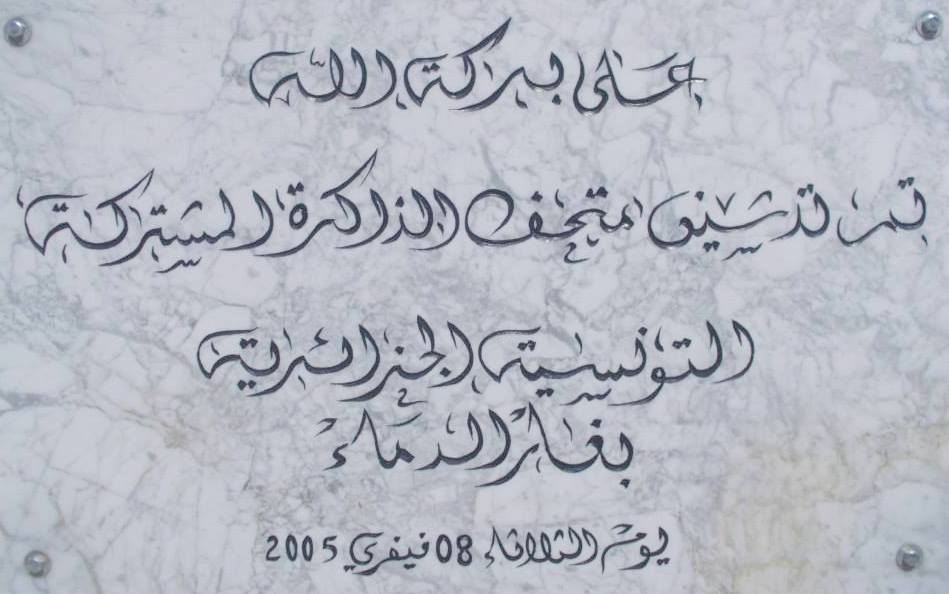 على بركة الله
تم تدشين متحف الذاكرة المشتركة
التونسية الجزائرية
بغار الدماء
يوم الثلاثاء 08 فيفري 2005